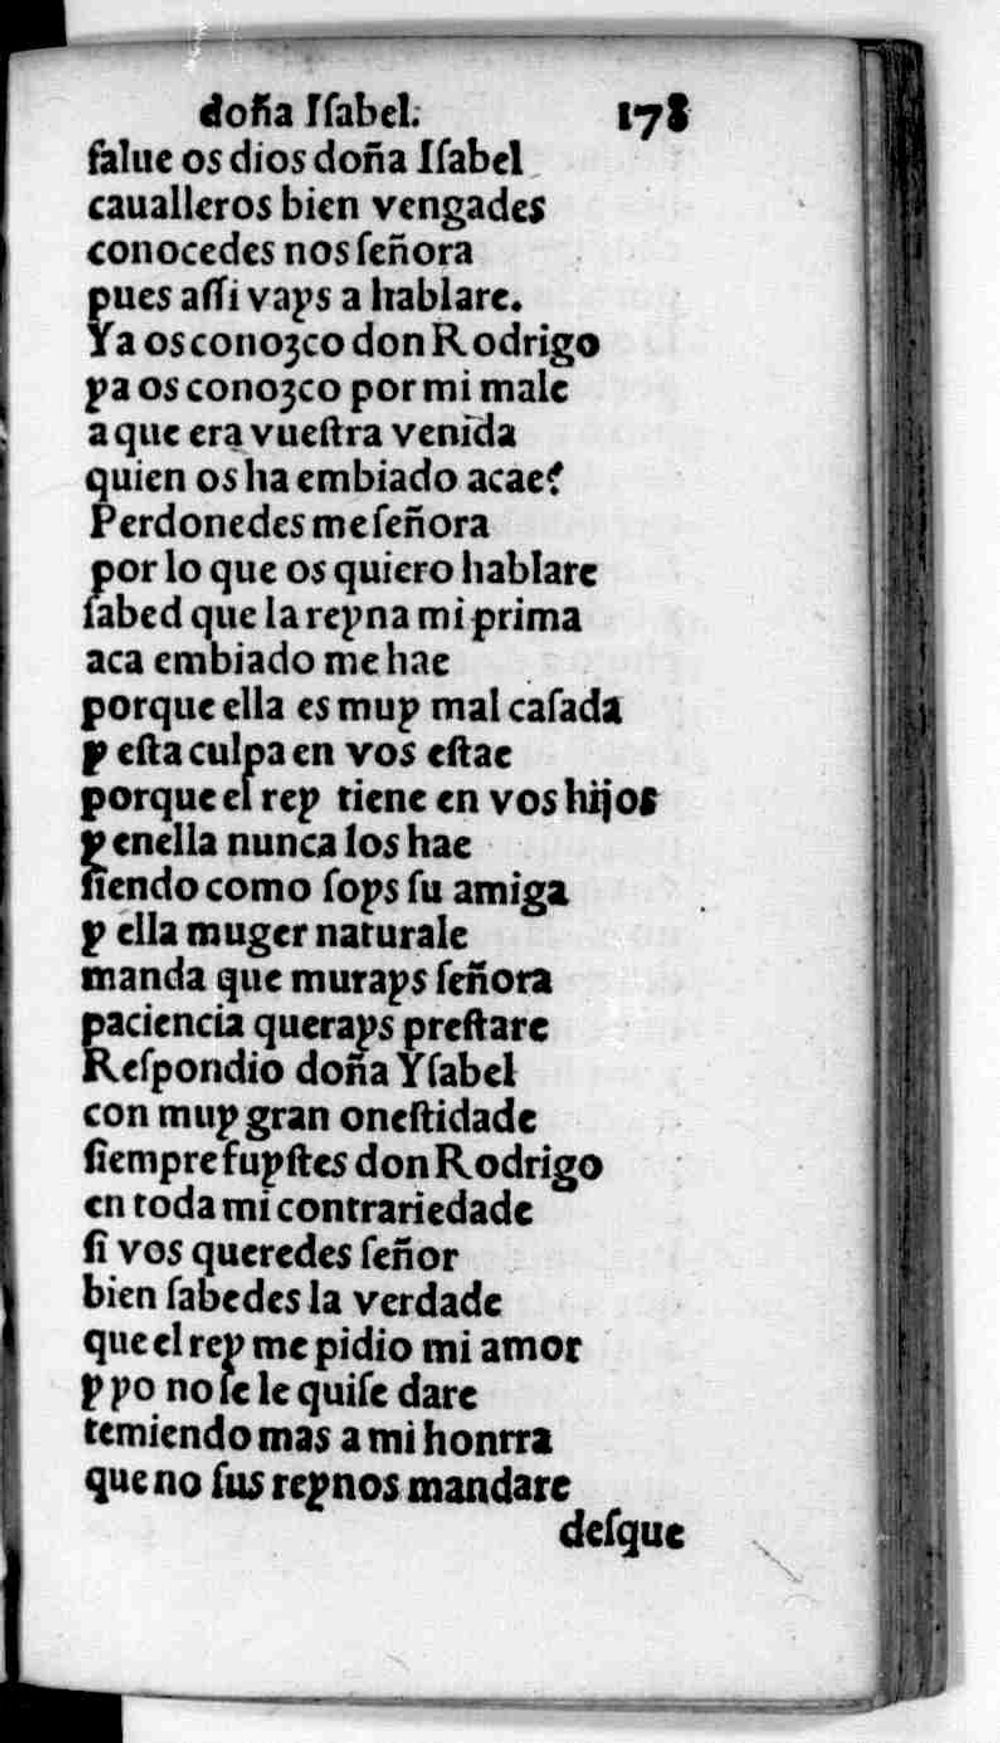 doña Iſabel: 178
ſalue os dios doña Iſabel
caualleros bien vengades
conocedes nos ſeñora
pues aſſi vays a hablare.
Ya os conozco don Rodrigo
ya os conozco por mi male
a que era vueſtra venida
quien os ha embiado acae?
Perdonedes me ſeñora
por lo que os quiero hablare
ſabed que la reyna mi prima
aca embiado me hae
porque ella es muy mal caſada
y eſta culpa en vos eſtae
porque el rey tiene en vos hijos
y enella nunca los hae
ſiendo como ſoys ſu amiga
y ella muger naturale
manda que murays ſeñora
paciencia querays preſtare
Reſpondio doña Yſabel
con muy gran oneſtidade
ſiempre fuyſtes don Rodrigo
en toda mi contrariedade
ſi vos queredes ſeñor
bien ſabedes la verdade
que el rey me pidio mi amor
y yo no ſe le quiſe dare
temiendo mas a mi honrra
que no ſus reynos mandare
deſque